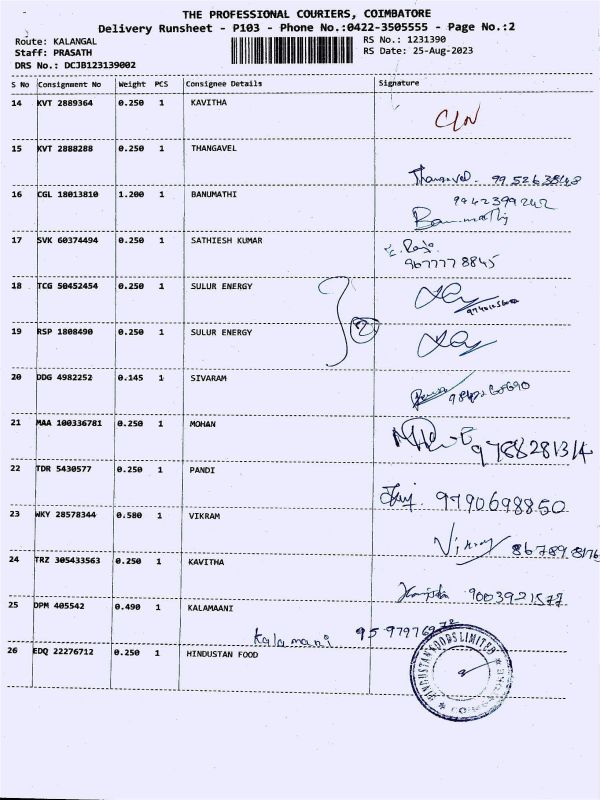 THE PROFESSIONAL COURIERS, COIMBATORE
Delivery Runsheet - P103 - Phone No.:0422-3505555 - Page No.:2
Route: KALANGAL
Staff: PRASATH
DRS No.: DCJB123139002
RS No.: 1231390
RS Date: 25-Aug-2023
S No Consignment No Weight PCS Consignee Details Signature
14 KVT 2889364 0.250 1 KAVITHA
15 KVT 2888288 0.250 1 THANGAVEL
Thangavel.
16 CGL 18013810 1.200 1 BANUMATHI
9942399242
Banumathi
17 SVK 60374494 0.250 1 SATHIESH KUMAR
9677778845
18 TCG 50452454 0.250 1 SULUR ENERGY
2
19 RSP 1808490 0.250 1 SULUR ENERGY
20 DDG 4982252 0.145 1 SIVARAM
21 MAA 100336781 0.250 1 MOHAN
9788281314
22 TDR 5430577 0.250 1 PANDI
9790698850
23 WKY 28578344 0.580 1 VIKRAM
24 TRZ 305433563 0.250 1 KAVITHA
9003921577
25 DPM 405542 0.490 1 KALAMAANI
kalamani
26 EDQ 22276712 0.250 1 HINDUSTAN FOOD
HINDUSTAN FOODS LIMITED